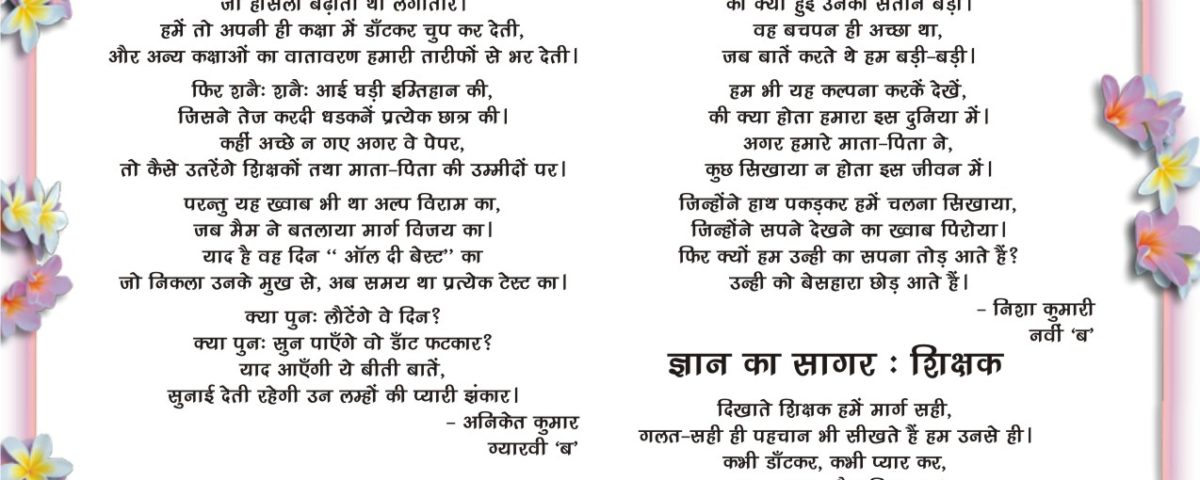 जो हौसला बढ़ाता था लगातार।
हमें तो अपनी ही कक्षा में डाँटकर चुप कर देती,
और अन्य कक्षाओं का वातावरण हमारी तारीफों से भर देती।
फिर शनैः शनैः आई घड़ी इम्तिहान की,
जिसने तेज करदी धडकनें प्रत्येक छात्र की।
कहीं अच्छे न गए अगर वे पेपर,
तो कैसे उतरेंगे शिक्षकों तथा माता-पिता की उम्मीदों पर।
परन्तु यह ख्वाब भी था अल्प विराम का,
जब मैम ने बतलाया मार्ग विजय का।
याद है वह दिन “ ऑल दी बेस्ट” का
जो निकला उनके मुख से, अब समय था प्रत्येक टेस्ट का।
क्या पुनः लौटेंगे वे दिन?
क्या पुनः सुन पाएँगे वो डाँट फटकार?
याद आएँगी ये बीती बातें,
सुनाई देती रहेगी उन लम्हों की प्यारी झंकार।
- अनिकेत कुमार
ग्यारवी ‘ब’
की क्या हुई उनकी संतान बड़ी।
वह बचपन ही अच्छा था,
जब बातें करते थे हम बड़ी-बड़ी।
हम भी यह कल्पना करकें देखें,
की क्या होता हमारा इस दुनिया में।
अगर हमारे माता-पिता ने,
कुछ सिखाया न होता इस जीवन में।
जिन्होंने हाथ पकड़कर हमें चलना सिखाया,
जिन्होंने सपने देखने का ख्वाब पिरोया।
फिर क्यों हम उन्ही का सपना तोड़ आते हैं?
उन्ही को बेसहारा छोड़ आते हैं।
- निशा कुमारी
नवीं ‘ब’
ज्ञान का सागर : शिक्षक
दिखाते शिक्षक हमें मार्ग सही,
गलत-सही ही पहचान भी सीखते हैं हम उनसे ही।
कभी डाँटकर, कभी प्यार कर,